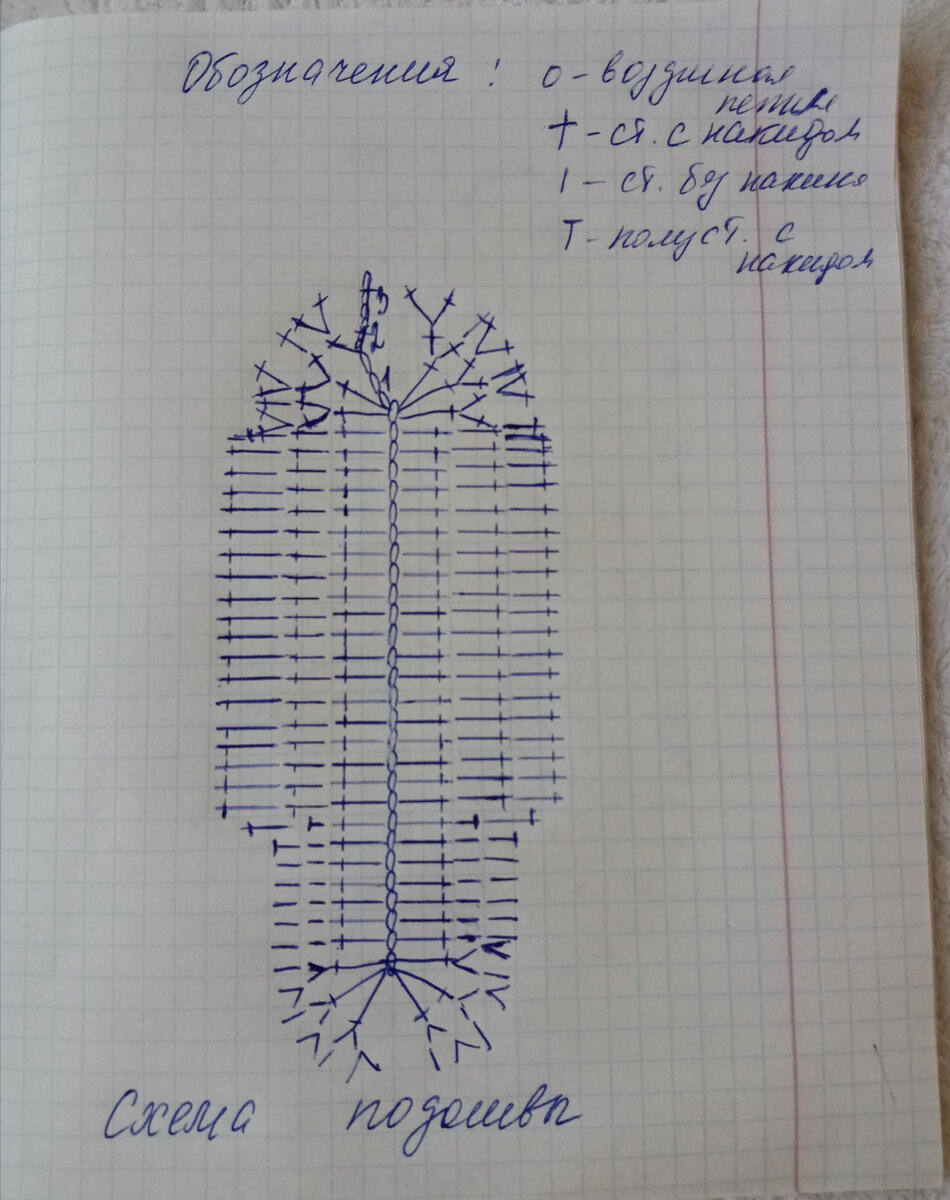 Обозначения : о - воздушная
петля
† - ст. с накидом
I - ст. без накида
Т - полуст. с
накидом
3
2
1
Схема подошвы